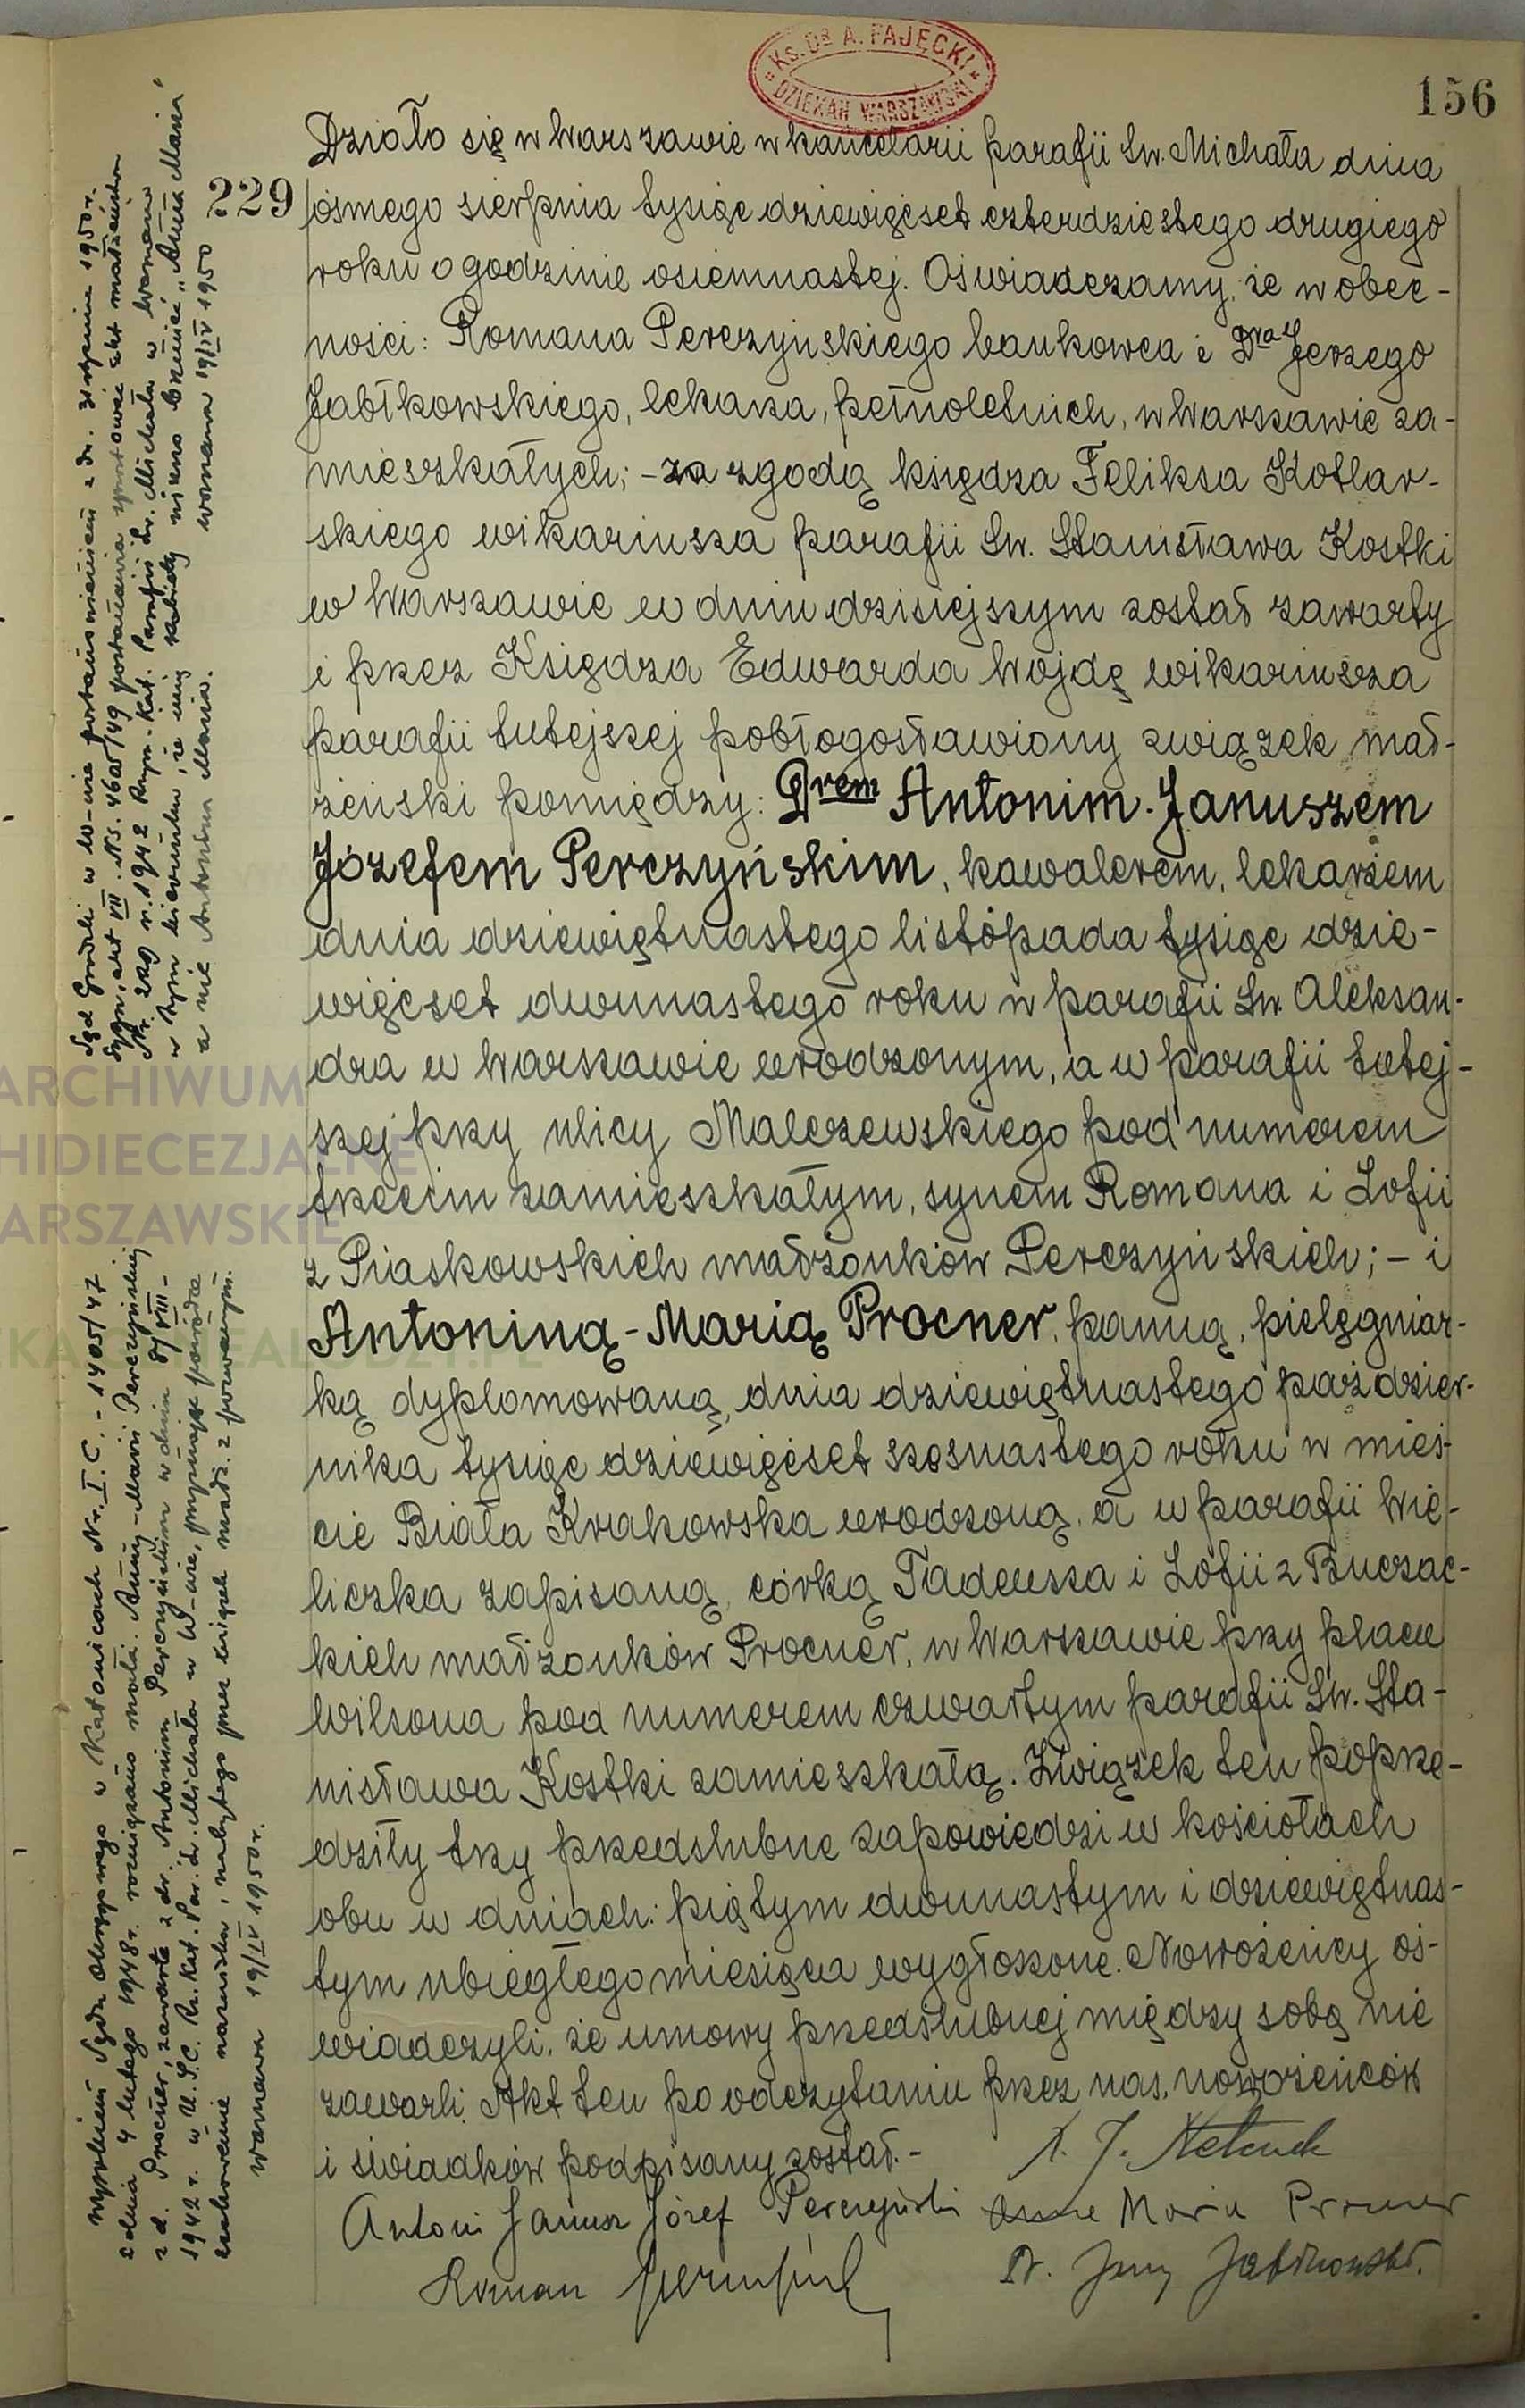 Ks. Dr A. PAJĘCKI
DZIEKAN WARSZAWSKI
156
229
Działo się w Warszawie w kancelarii parafii Św. Michała dnia
ósmego sierpnia tysiąc dziewięćset czterdziestego drugiego
roku o godzinie osiemnastej. Oświadczamy, że w obec-
ności: Romana Perczyńskiego bankowca i Dra Jerzego
Jabłkowskiego, lekarza, pełnoletnich, w Warszawie za-
mieszkałych; - za zgodą księdza Feliksa Kotlar-
skiego wikariusza parafii Św. Stanisława Kostki
w Warszawie w dniu dzisiejszym został zawarty
i przez Księdza Edwarda Wojdę wikariusza
parafii tutejszej pobłogosławiony związek mał-
żeński pomiędzy: Drem Antonim-Januszem
Józefem Perczyńskim, kawalerem, lekarzem
dnia dziewiętnastego listopada tysiąc dzie-
więćset dwunastego roku w parafii Św. Aleksan-
dra w Warszawie urodzonym, a w parafii tutej-
szej przy ulicy Malczewskiego pod numerem
trzecim zamieszkałym, synem Romana i Zofii
z Piaskowskich małżonków Perczyńskich; - i
Antoniną-Marią Procner, panną, pielęgniar-
ką dyplomowaną, dnia dziewiętnastego paździer-
nika tysiąc dziewięćset szesnastego roku w mieś-
cie Biała Krakowska urodzoną, a w parafii Wie-
liczka zapisaną, córką Tadeusza i Zofii z Buczac-
kich małżonków Procner, w Warszawie przy placu
Wilsona pod numerem czwartym parafii Św. Sta-
nisława Kostki zamieszkałą. Związek ten poprze-
dziły trzy przedślubne zapowiedzi w kościołach
obu w dniach: piątym dwunastym i dziewiętnas-
tym ubiegłego miesiąca wygłoszone. Nowożeńcy oś-
wiadczyli, że umowy przedślubnej między sobą nie
zawarli. Akt ten po odczytaniu przez nas, nowożeńców
i świadków podpisany został.-
Antoni Janusz Józef Perczyński Anna Maria Procner
Roman Perczyński Dr. Jerzy Jabłkowski.
Sąd Grodzki w W-wie postanowieniem z dn. 31 stycznia 1950 r.
Sygn. akt VII. Ns. 4605/49 postanowił sprostować akt małżeństwa
Nr. 229 r. 1942 Rzym-Kat. Parafii św. Michała w Warszawie
w tym kierunku, że imię kobiety winno brzmieć „Anna Maria"
a nie Antonina Maria.
Warszawa 19/IV 1950
Wyrokiem Sądu Okręgowego w Katowicach Nr. I. C. - 1405/47
z dnia 4 lutego 1948 r. rozwiązano małż. Anny-Marii Perczyńskiej
z d. Procner, zawarte z dr. Antonim Perczyńskim w dniu 8/VIII-
1942 r. w U.S.C. Rz. Kat. Par. św. Michała w W-wie, przyznając powódce
zachowanie nazwiska, nabytego przez związek małż. z pozwanym.
Warszawa 19/IV 1950 r.
ARCHIWUM
HIDIECEZJALNE
ARSZAWSKIE